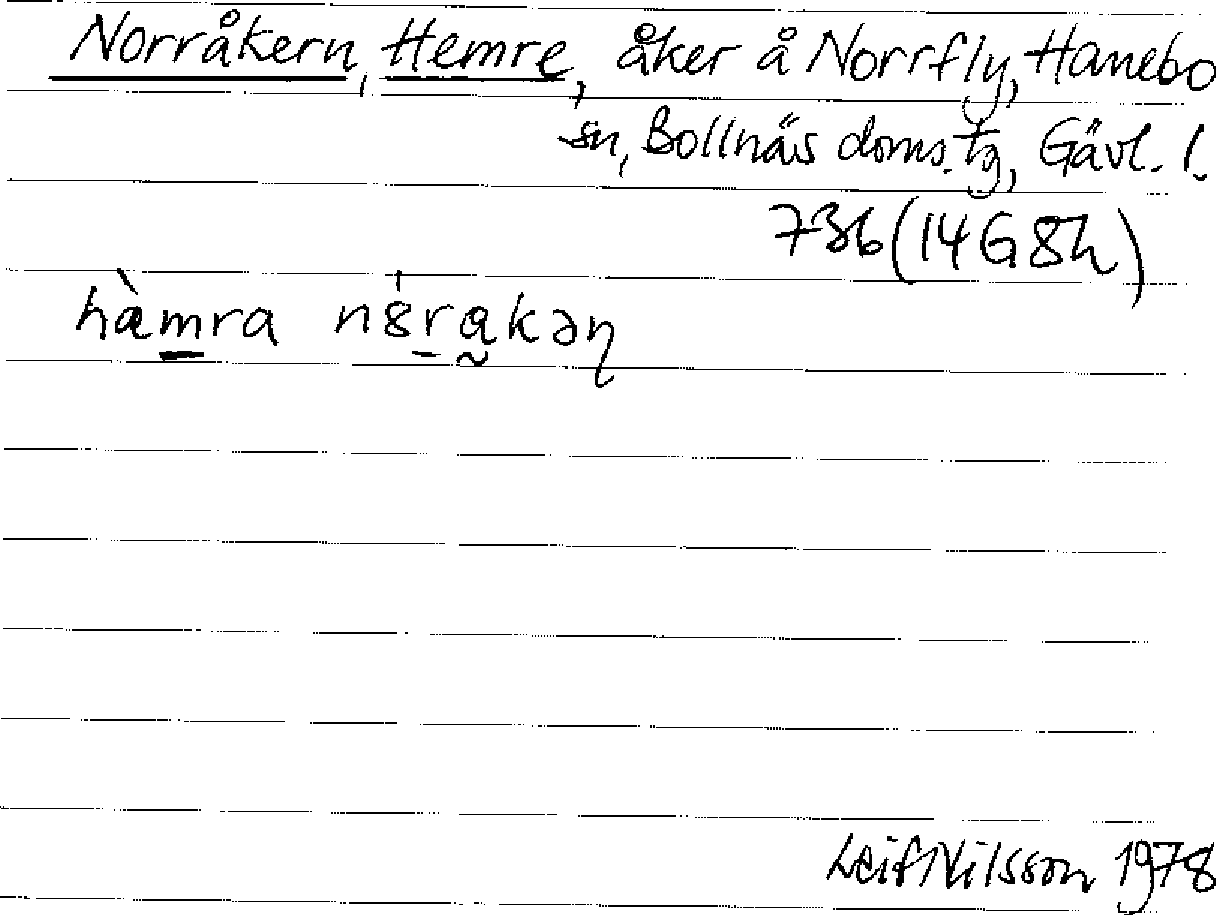 Norråkern, Hemre, åker å Norrfly, Hanebo
sn, Bollnäs doms. tg, Gävl. l.
736 (14G8h)
hàmra nȣ́rakəɳ
Leif Nilsson 1978